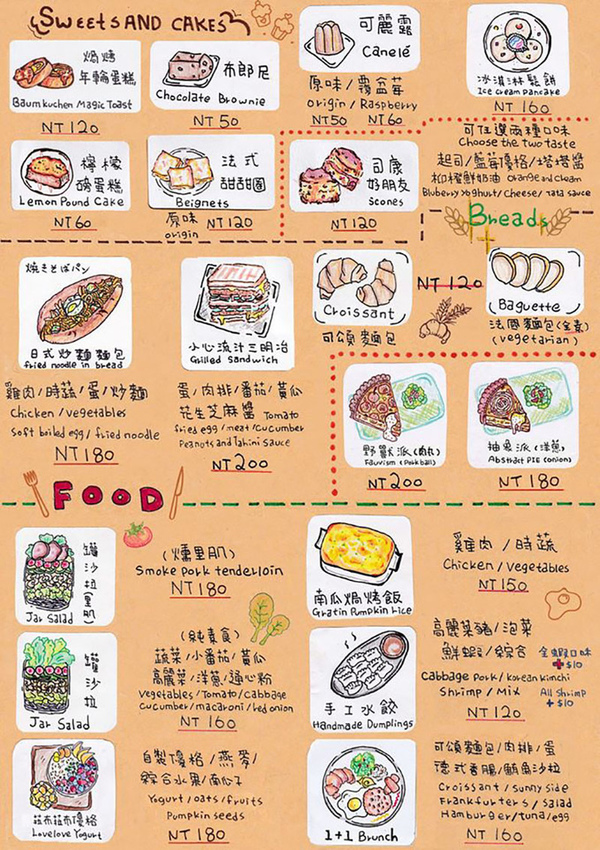 Sweets AND CAKES
焗烤
年輪蛋糕
Baumkuchen Magic Toast
NT 120
布郎尼
Chocolate Brownie
NT 50
可麗露
Canelé
原味/覆盆莓
origin/Raspberry
NT50 NT 60
冰淇淋鬆餅
Ice cream pancake
NT 160
可任選兩種口味
Choose the two taste
起司/藍莓優格/塔塔醬
柳橙鮮奶油 Orange and cream
Bluberry yoghult/Cheese/Tata sauce
檸檬
磅蛋糕
Lemon Pound Cake
NT 60
法式
甜甜圈
Beignets
原味
origin
NT 120
司康
好朋友
Scones
NT 120
Breads
焼きとばパン
日式炒麵麵包
fried noodle in bread
雞肉/時蔬/蛋/炒麵
Chicken/vegetables
soft boiled egg/fried noodle
NT 180
小心流汁三明治
Grilled sandwich
蛋/肉排/番茄/黃瓜
花生芝麻醬 Tomato
fried egg/meat/cucumber
Peanots and Tahini sauce
NT 200
Croissant
可頌麵包
NT 120
Baguette
法國麵包(全素)
(vegetarian)
野獸派(肉丸)
Fauvism (Pork ball)
NT 200
抽象派(洋蔥)
Abstract PIE (onion)
NT 180
FOOD
罐沙拉(里肌)
Jar Salad
(燻里肌)
Smoke pork tenderloin
NT 180
罐沙拉
Jar Salad
(純素食)
蔬菜/小番茄/黃瓜
高麗菜/洋蔥/通心粉
Vegetables/Tomato/Cabbage
cucumber/macaroni/led onion
NT 160
菈芙菈芙優格
Lovelove Yogurt
自製優格/燕麥/
綜合水果/南瓜子
Yogurt/oats/fruits
Pumpkin seeds
NT 180
南瓜焗烤飯
Gratin Pumpkin rice
雞肉/時蔬
Chicken/vegetables
NT 150
手工水餃
Handmade Dumplings
高麗菜豬/泡菜
鮮蝦/綜合
全蝦口味
+$10
Cabbage Pork/Korean kimchi
Shrimp/Mix
All Shrimp
+$10
NT 120
1+1 Brunch
可頌麵包/肉排/蛋
德式香腸/鮪魚沙拉
Croissant/sunny side
Frankfurters/salad
Hamburger/tuna/egg
NT 160